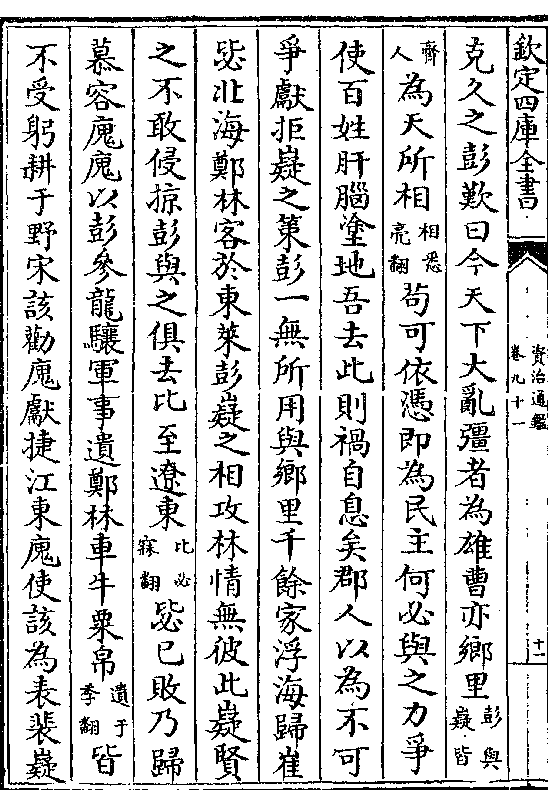 欽定四庫全書
資治通鑑
卷九十一
十一
克久之彭歎曰今天下大亂彊者為雄曹亦鄉里彭與嶷皆
齊人為天所相相悉亮翻苟可依憑即為民主何必與之力爭
使百姓肝腦塗地吾去此則禍自息矣郡人以為不可
爭獻拒嶷之策彭一無所用與鄉里千餘家浮海歸崔
毖北海鄭林客於東萊彭嶷之相攻林情無彼此嶷賢
之不敢侵掠彭與之俱去比至遼東比必寐翻毖已敗乃歸
慕容廆廆以彭參龍驤軍事遺鄭林車牛粟帛遺于季翻皆
不受躬耕于野宋該勸廆獻捷江東廆使該為表裴嶷